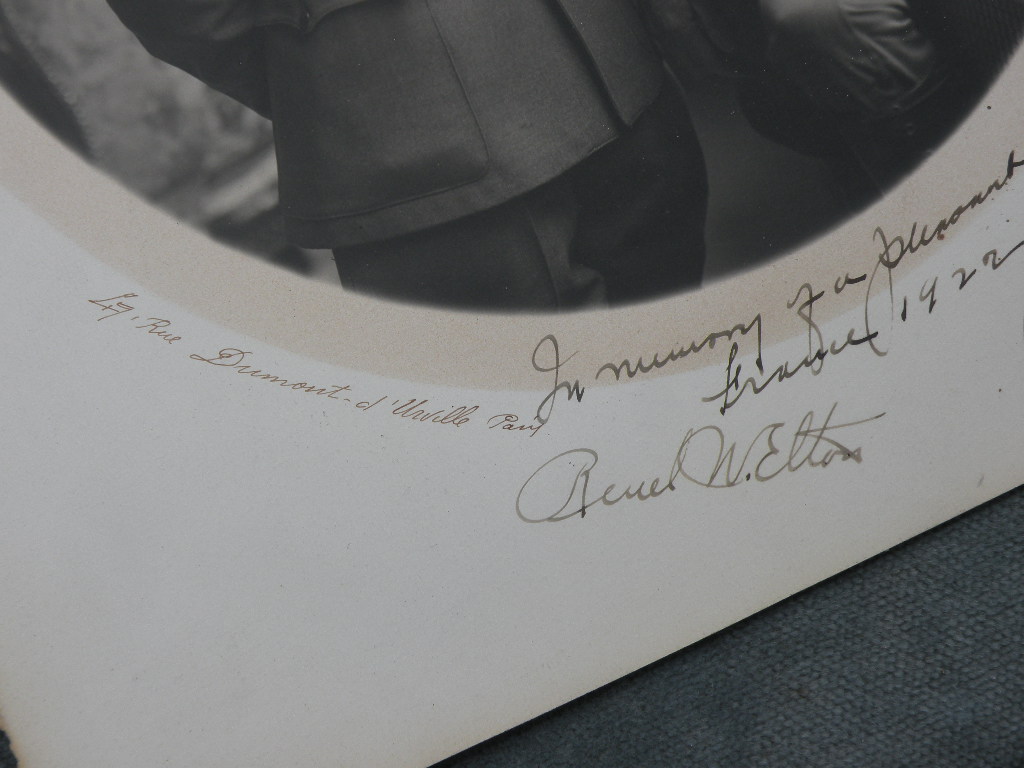 Rue Dumont-d'Urville Paris
In memory of a pleasant
France, 1922
Reuel W. Elton